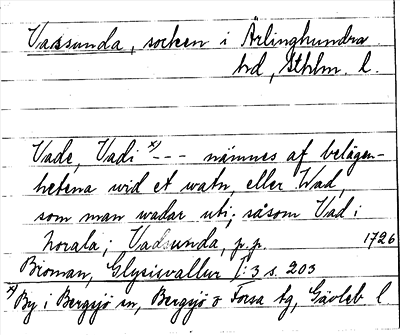 Vassunda, socken i Ärlinghundra
hd, Sthlm. l.
Vade, Vadi x) --- nämnes af belägen-
hetena wid et watn, eller Wad,
som man wadar uti; såsom Vad i
horala; Vadsunda, p.p. 1726
Broman, Glysisvallur I:3 s. 203
x) By i Bergsjö sn, Bergsjö o Forsa tg, Gävleb l